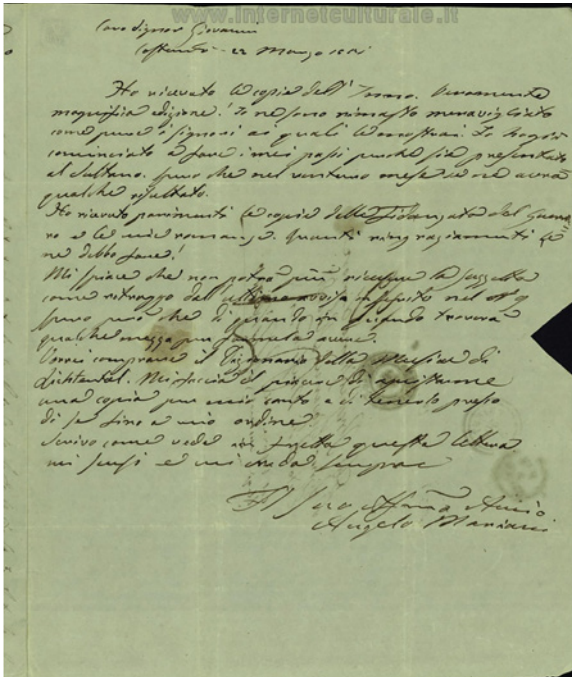 www.internetculturale.it
Caro Signor Giovanni
22 Marzo
Ho ricevuto le copie dell' Inno. Veramente
magnifica edizione! Io ne sono rimasto meravigliato
come pure i signori ai quali le mostrai. Io
cominciato a fare i miei passi perché sia presentato
al Sultano. Spero che nel venturo mese se ne avrà
qualche risultato.
Ho ricevuto parimenti le copie della Fidanzata del Guerrie=
ro e le mie romanze. Quanti ringraziamenti Le
ne debbo fare!
Mi spiace che non potrò più ricevere la Gazzetta
come ritraggo dall' avviso nel Nº 9
spero però che di quando in quando troverà
qualche mezzo per farmela avere.
Vorrei comprare il Dizionario della Musica di
Lichtental. Mi faccia il piacere di
una copia per mio conto e di tenerlo presso
di se fino a mio ordine.
Scrivo come vede in fretta questa lettera.
mi scusi e mi creda sempre
Il Suo Affmo Amico
Angelo Mariani